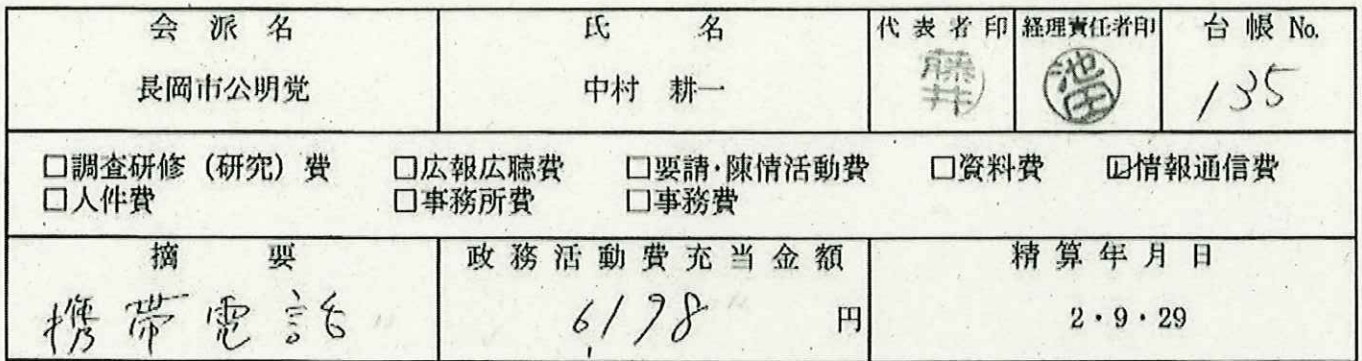 会派名 氏名 代表者印 経理責任者印 台帳No.
長岡市公明党 中村 耕一 藤井 池田 135
□調査研修(研究)費 □広報広聴費 □要請・陳情活動費 □資料費 ☑情報通信費
□人件費 □事務所費 □事務費
摘要 政務活動費充当金額 精算年月日
携帯電話 6,198 円 2・9・29